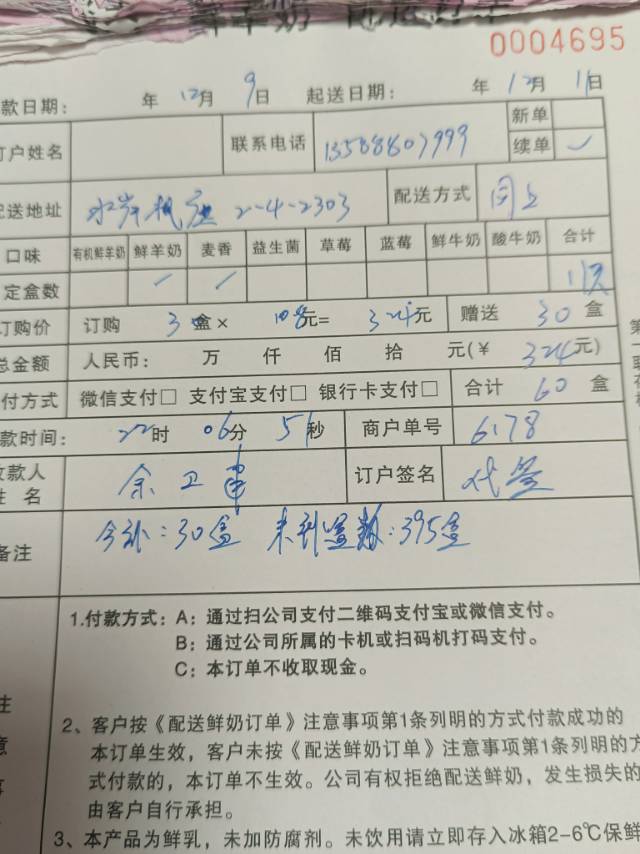 鲜羊奶 配送订单
0004695
款日期: 年 12月 9日 起送日期: 年 12月 11日
订户姓名 联系电话 13588807999 新单
续单 ✓
配送地址 水岸枫庭 2-4-2303 配送方式 同上
口味 有机鲜羊奶 鲜羊奶 麦香 益生菌 草莓 蓝莓 鲜牛奶 酸牛奶 合计
定盒数
订购价 订购 30盒× 10.8元= 324元 赠送 30 盒
总金额 人民币: 万 仟 佰 拾 元(¥ 324元)
付方式 微信支付□ 支付宝支付□ 银行卡支付□ 合计 60 盒
款时间: 22时 06分 51秒 商户单号 6178
收款人
姓 名 余卫 订户签名 代签
备注 今补:30盒 未到盒数:395盒
1.付款方式: A: 通过扫公司支付二维码支付宝或微信支付。
B: 通过公司所属的卡机或扫码机打码支付。
C: 本订单不收取现金。
2、客户按《配送鲜奶订单》注意事项第1条列明的方式付款成功的
本订单生效, 客户未按《配送鲜奶订单》注意事项第1条列明的方
式付款的, 本订单不生效。公司有权拒绝配送鲜奶, 发生损失的
由客户自行承担。
3、本产品为鲜乳, 未加防腐剂。未饮用请立即存入冰箱2-6℃保鲜